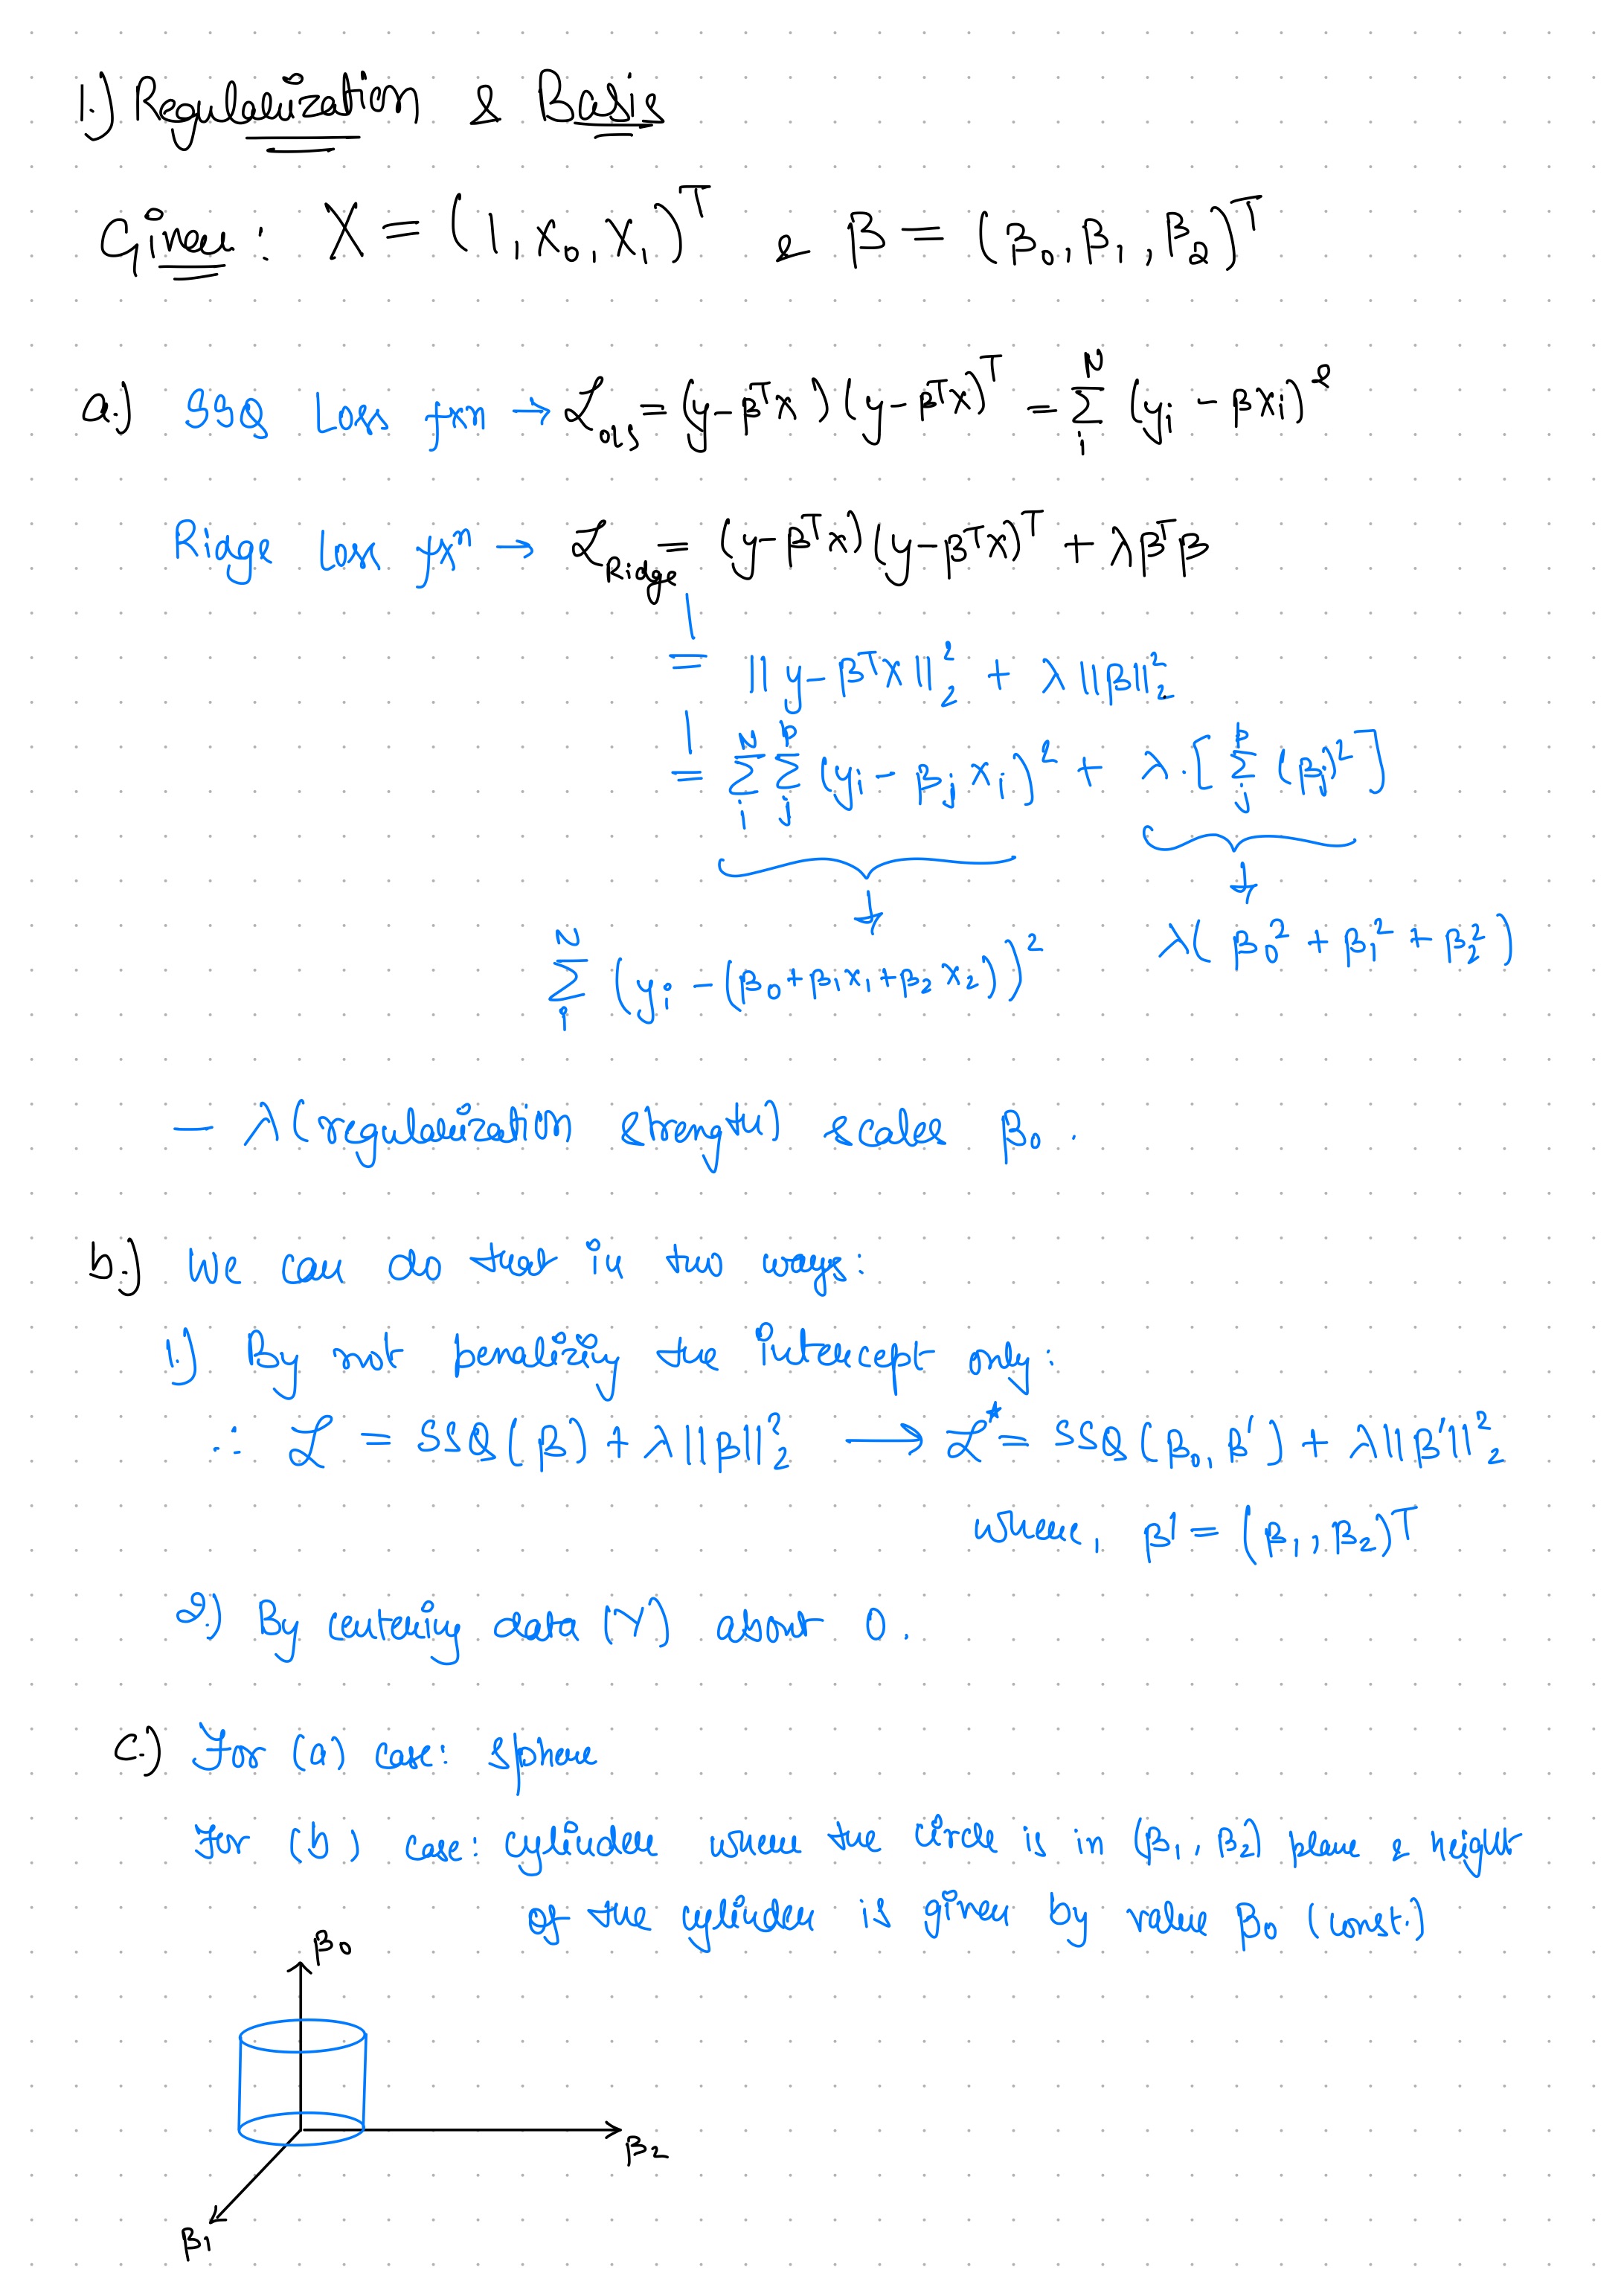 1.) Regularization & Basis
Given: X = (1, x₀, x₁)ᵀ & β = (β₀, β₁, β₂)ᵀ
a.) SSQ Loss fxn → ℒ_OLS = (y - βᵀx)(y - βᵀx)ᵀ = Σ_i^N (yᵢ - βxᵢ)²
Ridge Loss fxⁿ → ℒ_Ridge = (y - βᵀx)(y - βᵀx)ᵀ + λβᵀβ
= ||y - βᵀx||₂² + λ||β||₂²
= Σ_i^N Σ_j^p (yᵢ - βⱼxᵢ)² + λ.[Σ_j^p (βⱼ)²]
↓ ↓
Σ_i^N (yᵢ - (β₀ + β₁x₁ + β₂x₂))² λ(β₀² + β₁² + β₂²)
- λ (regularization strength) scales β₀.
b.) We can do that in two ways:
1.) By not penalizing the intercept only:
∴ ℒ = SSQ(β) + λ||β||₂² → ℒ* = SSQ(β₀, β') + λ||β'||₂²
where, β' = (β₁, β₂)ᵀ
2.) By centering data (Y) about 0.
c.) For (a) case: sphere
For (b) case: cylinder where the circle is in (β₁, β₂) plane & height
of the cylinder is given by value β₀ (const.)
β₀
β₂
β₁